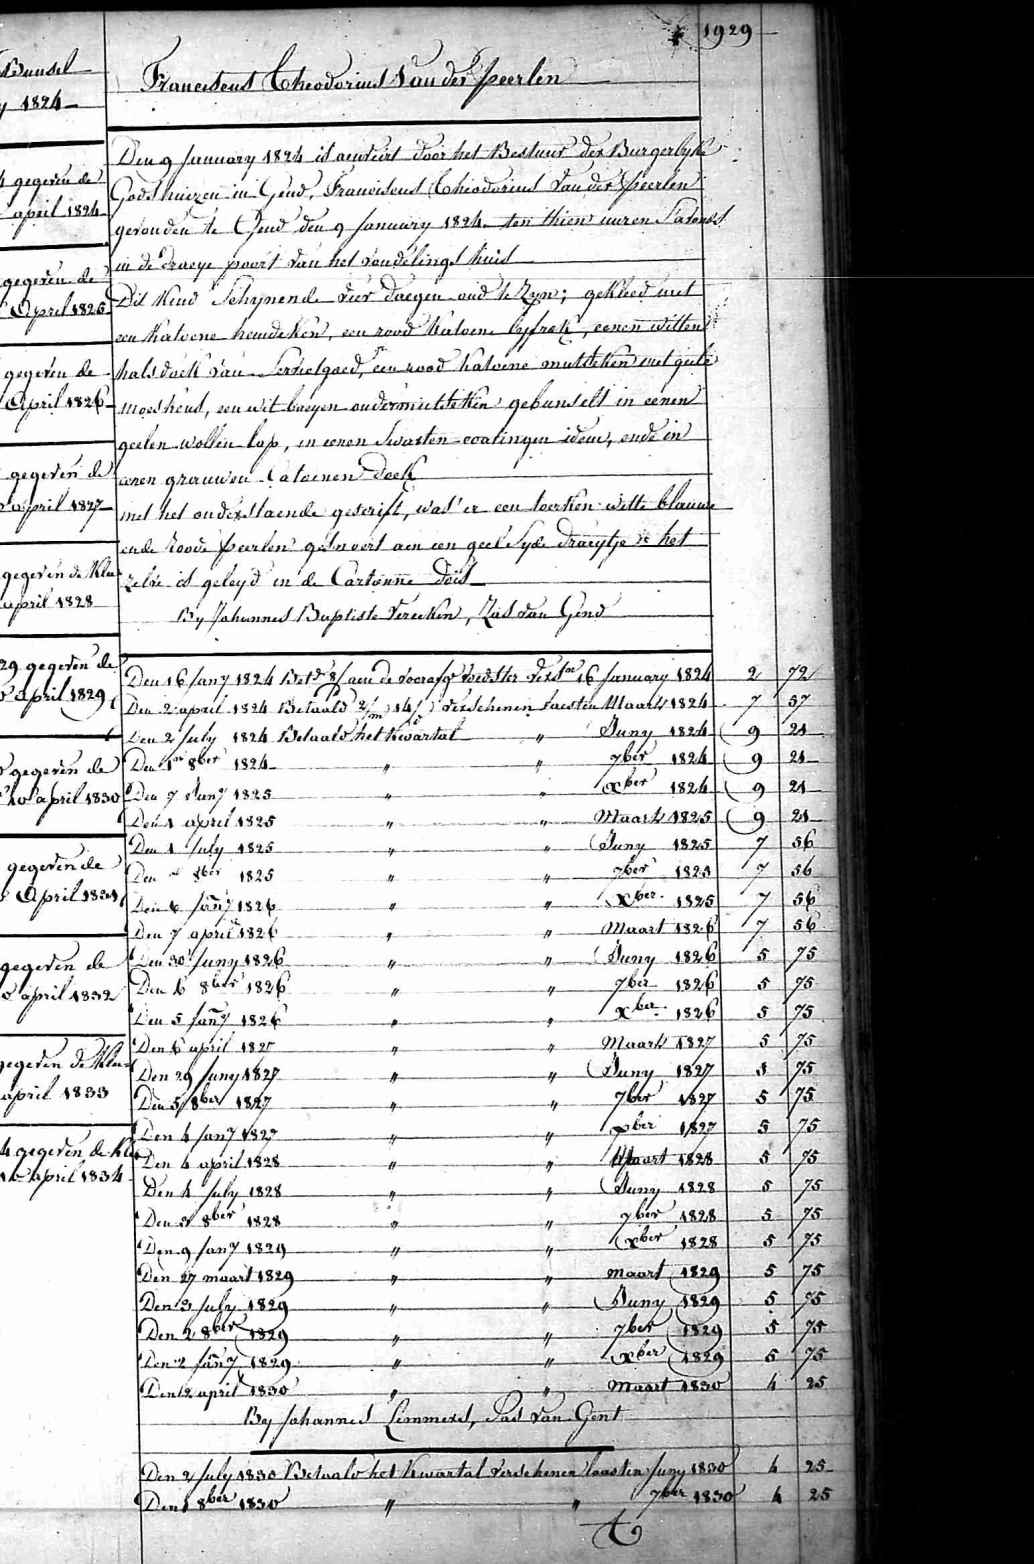 1929
Bunsel
y 1824
gegeven de
april 1824
gegeven de
April 1825
gegeven de
April 1826
gegeven de
april 1827
gegeven de
april 1828
29 gegeven de
april 1829
gegeven de
april 1830
gegeven de
April 1831
gegeven de
april 1832
gegeven de
april 1833
4 gegeven de
april 1834
Franciscus Theodorius Van der Peerlen
Den 9 January 1824 is door het Bestuur der Burgerlyke
Godshuizen in Gend, Franciscus Theodorius Van der Peerlen
gevonden te Gend den 9 January 1824 ten thien uuren S'avonds
in de draeye poort van het vondelings huis
Dit kind Schynende vier daegen oud te Zyn; gekleed met
een katoene hemdeken, een rood katoene lyfrok, eenen witten
halsdoek van een rood katoene mutsteken met geele
een wit baeyen ondermutsteken gebunselt in eenen
geelen wollen lap, in eenen Swarten coatingen idem, ende in
eenen grauwen Catoenen Doek
met het onderstaende geschrift, was er een teerken witte blauwe
ende roode peerlen gesnoert aen een geel Syde draeytje het
zelve is geleyd in de Cartonne Dois
By Johannes Baptiste Vereeken, Zas van Gend
Den 16 Jany 1824 16 January 1824 2 72
Den 2 april 1824 Betaald verschenen laesten Maart 1824 7 57
Den 2 July 1824 Betaald het Kwartal " Juny 1824 9 21
Den 1 8ber 1824 " " 7ber 1824 9 21
Den 7 Jany 1825 " " xber 1824 9 21
Den 1 april 1825 " " Maart 1825 9 21
Den 1 July 1825 " " Juny 1825 7 56
Den 8ber 1825 " " 7ber 1825 7 56
Den 6 Jany 1826 " " xber 1825 7 56
Den 7 april 1826 " " Maart 1826 7 56
Den 30 Juny 1826 " " Juny 1826 5 75
Den 6 8ber 1826 " " 7ber 1826 5 75
Den 5 Jany 1826 " " xber 1826 5 75
Den 6 april 1827 " " Maart 1827 5 75
Den 29 Juny 1827 " " Juny 1827 5 75
Den 5 8ber 1827 " " 7ber 1827 5 75
Den 4 Jany 1827 " " xber 1827 5 75
Den 4 april 1828 " " Maart 1828 5 75
Den 4 July 1828 " " Juny 1828 5 75
Den 3 8ber 1828 " " 7ber 1828 5 75
Den 9 Jany 1829 " " xber 1828 5 75
Den 27 maart 1829 " " maart 1829 5 75
Den 3 July 1829 " " Juny 1829 5 75
Den 2 8ber 1829 " " 7ber 1829 5 75
Den 2 Jany 1829 " " xber 1829 5 75
Den 2 april 1830 " " Maart 1830 4 25
By Johannes Lemmens, Sas van Gent
Den 2 July 1830 Betaald het Kwartal verschenen laasten Juny 1830 4 25
Den 1 8ber 1830 " " 7ber 1830 4 25